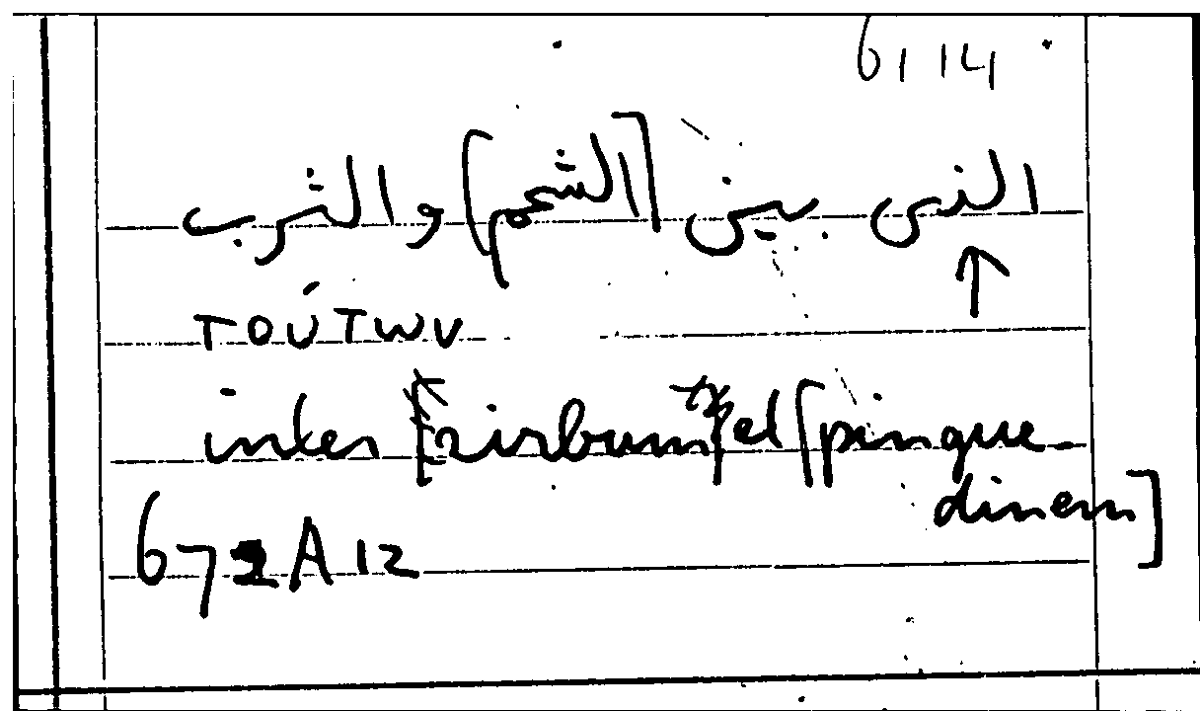 61 14
بين [الشحم] والثرب
τούτων
inter [zirbum] et [pingue-
dinem]
672A12